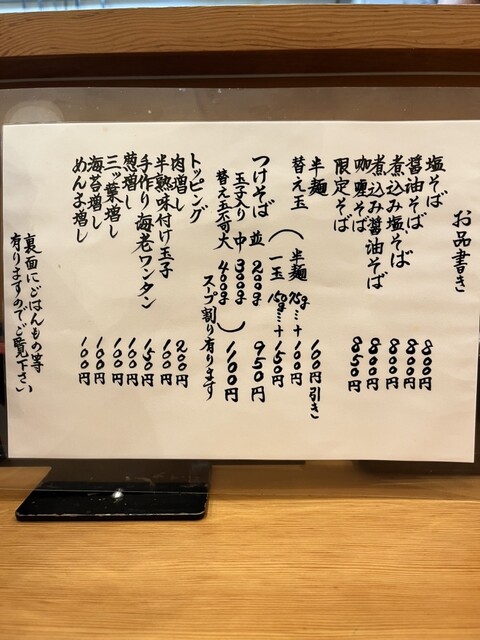 お品書き
塩そば 800円
醤油そば 800円
煮込み塩そば 800円
煮込み醤油そば 800円
咖喱そば 800円
限定そば 850円
半麺 100円引き
替え玉（半麺 75g…＋100円
一玉 150g…＋150円
つけそば 並 200g 950円
玉子入り 中 300g
替え玉不可 大 400g）1100円
スープ割り有ります
トッピング
肉増し 200円
半熟味付け玉子 100円
手作り海老ワンタン 150円
葱増し 100円
三ッ葉増し 100円
海苔増し 100円
めんま増し 100円
裏面にごはんもの等
有りますのでご覧下さい